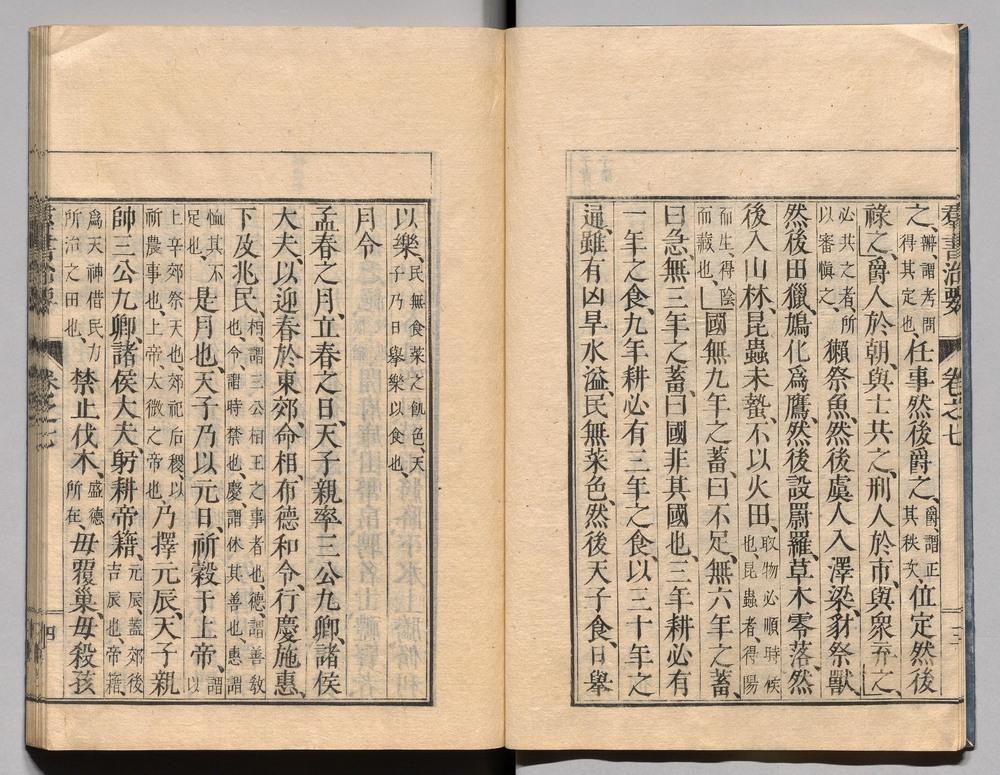 群書治要 卷之七 三
之、辯、謂考問得其定也、任事然後爵之、爵、謂正其秩次、位定然後
祿之、爵人於朝、與士共之、刑人於市、與衆弃之、
必共之者、所以審愼之、獺祭魚、然後虞人入澤梁、豺祭獸、
然後田獵、鳩化爲鷹、然後設罻羅、草木零落、然
後入山林、昆蟲未蟄、不以火田、取物必順時候也、昆蟲者、得陽
而生、得陰而藏也、國無九年之蓄、曰不足、無六年之蓄、
曰急、無三年之蓄、曰國非其國也、三年耕必有
一年之食、九年耕必有三年之食、以三十年之
通、雖有凶旱水溢、民無菜色、然後天子食、日舉
以樂、民無食菜之飢色、天子乃日舉樂以食也、
月令
孟春之月、立春之日、天子親率三公九卿、諸侯
大夫、以迎春於東郊、命相、布德和令、行慶施惠、
下及兆民、相、謂三公相王之事者也、德謂善敎也、令、謂時禁也、慶、謂休其善也、惠謂
恤其不足也、是月也、天子乃以元日、祈穀于上帝、謂以
上辛郊祭天也、郊祀后稷、以祈農事也、上帝、太微之帝也、乃擇元辰、天子親
帥三公九卿、諸侯大夫、躬耕帝籍、元辰、蓋郊後吉辰也、帝籍、
爲天神借民力所治之田也、禁止伐木、盛德所在、毋覆巢、毋殺孩
群書治要 卷之七 四